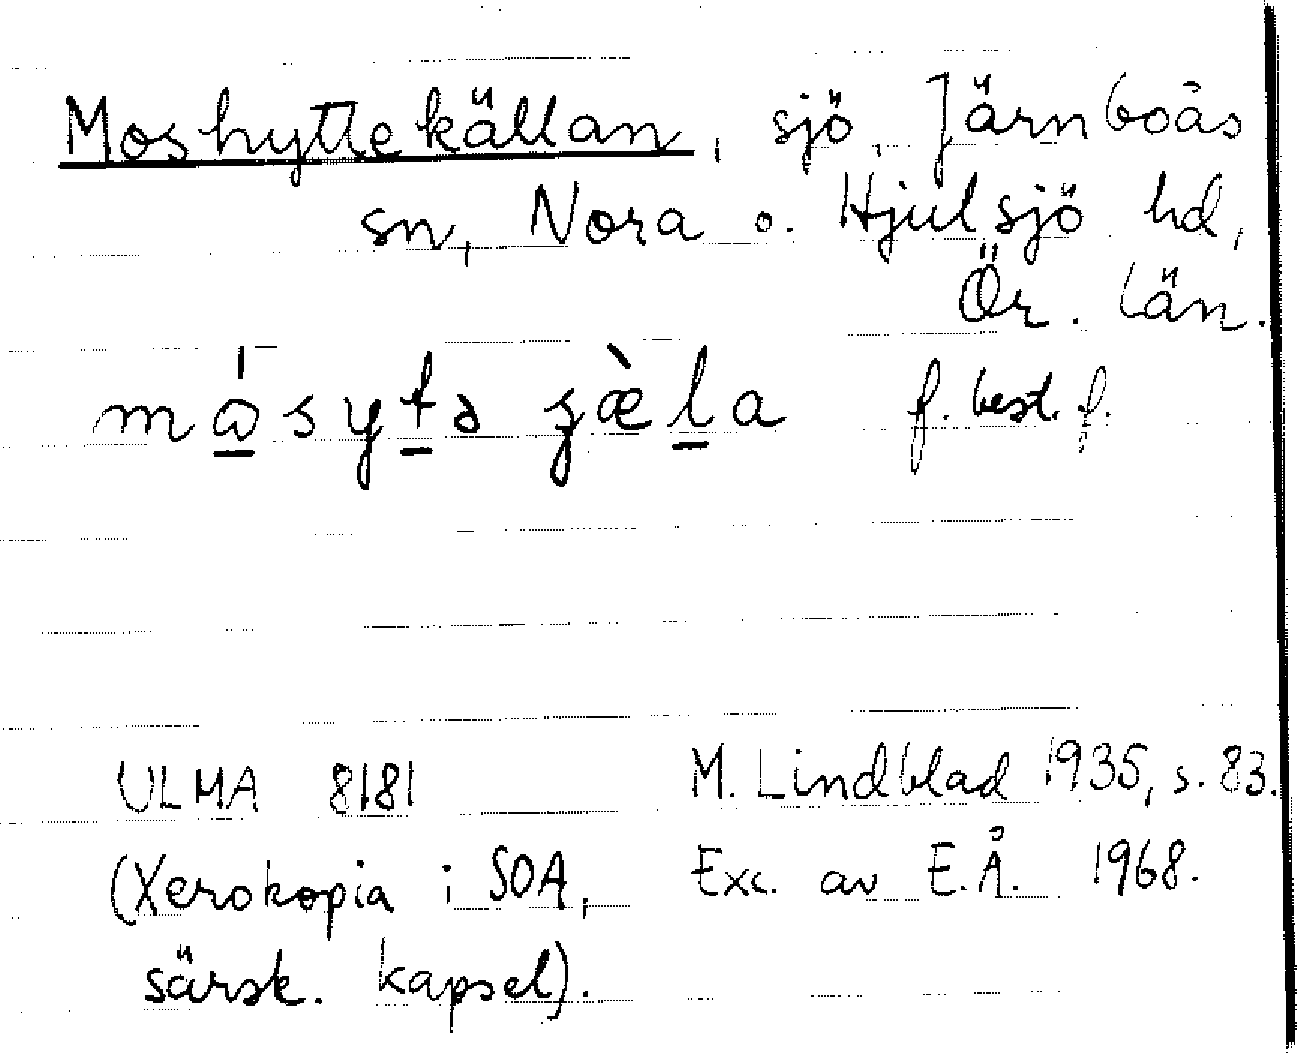 Moshyttekällan, sjö, Järnboås
sn, Nora o. Hjulsjö hd,
Ör. län.
f. best. f.
ULMA 8181 M. Lindblad 1935, s. 83.
(Xerokopia i SOA, Exc. av E.Å. 1968.
särsk. kapsel).